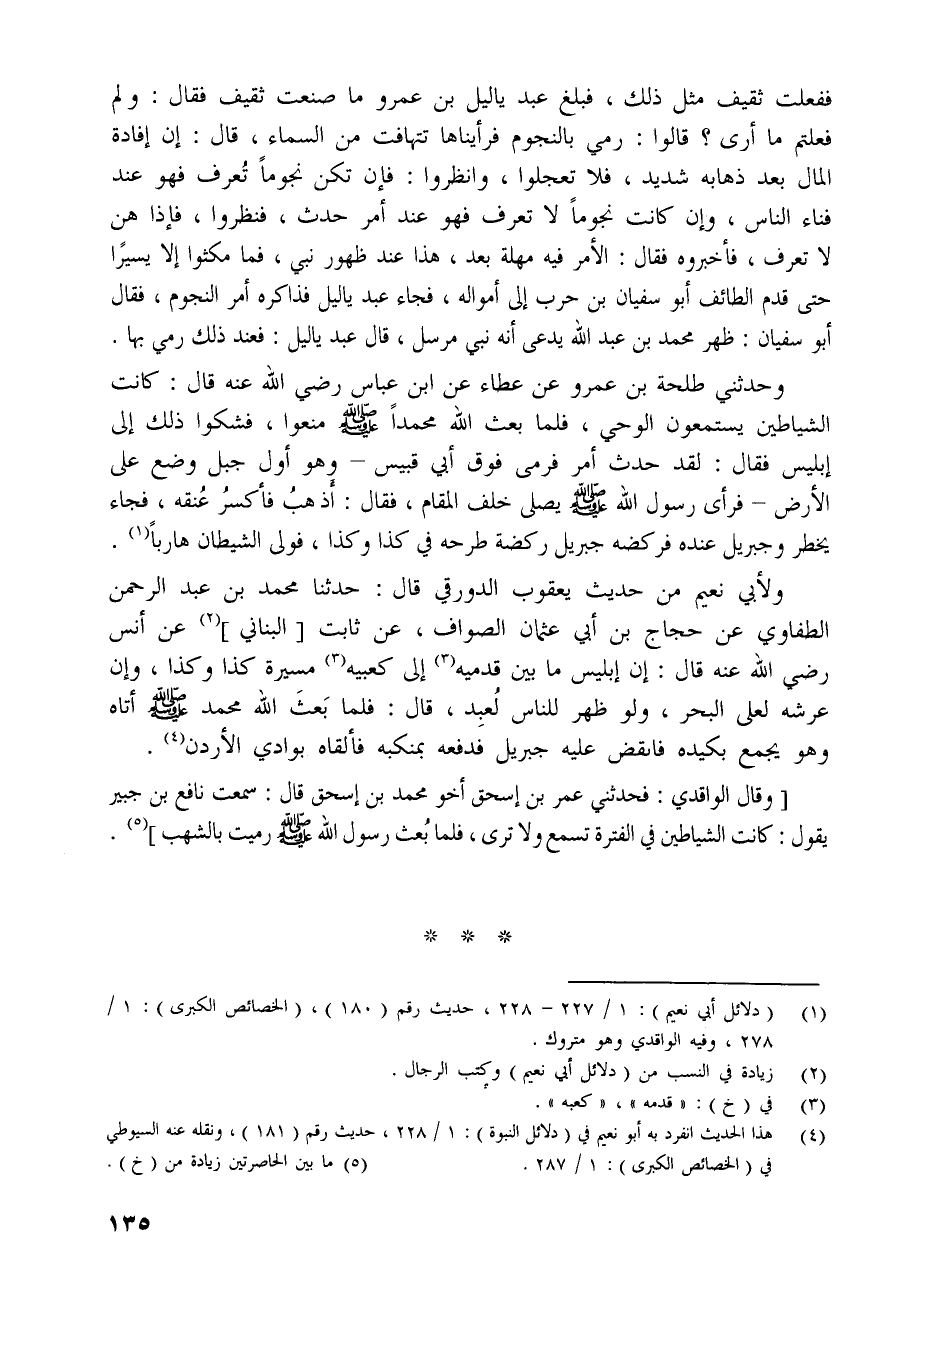 ففعلت ثقيف مثل ذلك ، فبلغ عبد ياليل بن عمرو ما صنعت ثقيف فقال : ولم
فعلتم ما أرى ؟ قالوا : رمي بالنجوم فرأيناها تتهافت من السماء ، قال : إن إفادة
المال بعد ذهابه شديد ، فلا تعجلوا ، وانظروا : فإن تكن نجوماً تُعرف فهو عند
فناء الناس ، وإن كانت نجوماً لا تعرف فهو عند أمر حدث ، فنظروا ، فإذا هن
لا تعرف ، فأخبروه فقال : الأمر فيه مهلة بعد ، هذا عند ظهور نبي ، فما مكثوا إلا يسيرًا
حتى قدم الطائف أبو سفيان بن حرب إلى أمواله ، فجاء عبد ياليل فذاكره أمر النجوم ، فقال
أبو سفيان : ظهر محمد بن عبد الله يدعى أنه نبي مرسل ، قال عبد ياليل : فعند ذلك رمي بها .
وحدثني طلحة بن عمرو عن عطاء عن ابن عباس رضي الله عنه قال : كانت
الشياطين يستمعون الوحي ، فلما بعث الله محمداً ﷺ منعوا ، فشكوا ذلك إلى
إبليس فقال : لقد حدث أمر فرمى فوق أبي قبيس – وهو أول جبل وضع على
الأرض – فرأى رسول الله ﷺ يصلى خلف المقام ، فقال : أَذهبُ فأكسرُ عُنقه ، فجاء
يخطر وجبريل عنده فركضه جبريل ركضة طرحه في كذا وكذا ، فولى الشيطان هارباً(١) .
ولأبي نعيم من حديث يعقوب الدورقي قال : حدثنا محمد بن عبد الرحمن
الطفاوي عن حجاج بن أبي عثمان الصواف ، عن ثابت [ البناني ](٢) عن أنس
رضي الله عنه قال : إن إبليس ما بين قدميه(٣) إلى كعبيه(٣) مسيرة كذا وكذا ، وإن
عرشه لعلى البحر ، ولو ظهر للناس لُعبِد ، قال : فلما بَعثَ الله محمد ﷺ أتاه
وهو يجمع بكيده فانقض عليه جبريل فدفعه بمنكبه فألقاه بوادي الأردن(٤) .
[ وقال الواقدي : فحدثني عمر بن إسحق أخو محمد بن إسحق قال : سمعت نافع بن جبير
يقول : كانت الشياطين في الفترة تسمع ولا ترى ، فلما بُعث رسول الله ﷺ رميت بالشهب ](٥) .
* * *
(١) ( دلائل أبي نعيم ) : ١ / ٢٢٧ – ٢٢٨ ، حديث رقم ( ١٨٠ ) ، ( الخصائص الكبرى ) : ١ /
٢٧٨ ، وفيه الواقدي وهو متروك .
(٢) زيادة في النسب من ( دلائل أبي نعيم ) وكتب الرجال .
(٣) في ( خ ) : « قدمه » ، « كعبه » .
(٤) هذا الحديث انفرد به أبو نعيم في ( دلائل النبوة ) : ١ / ٢٢٨ ، حديث رقم ( ١٨١ ) ، ونقله عنه السيوطي
في ( الخصائص الكبرى ) : ١ / ٢٨٧ . (٥) ما بين الحاصرتين زيادة من ( خ ) .
١٣٥